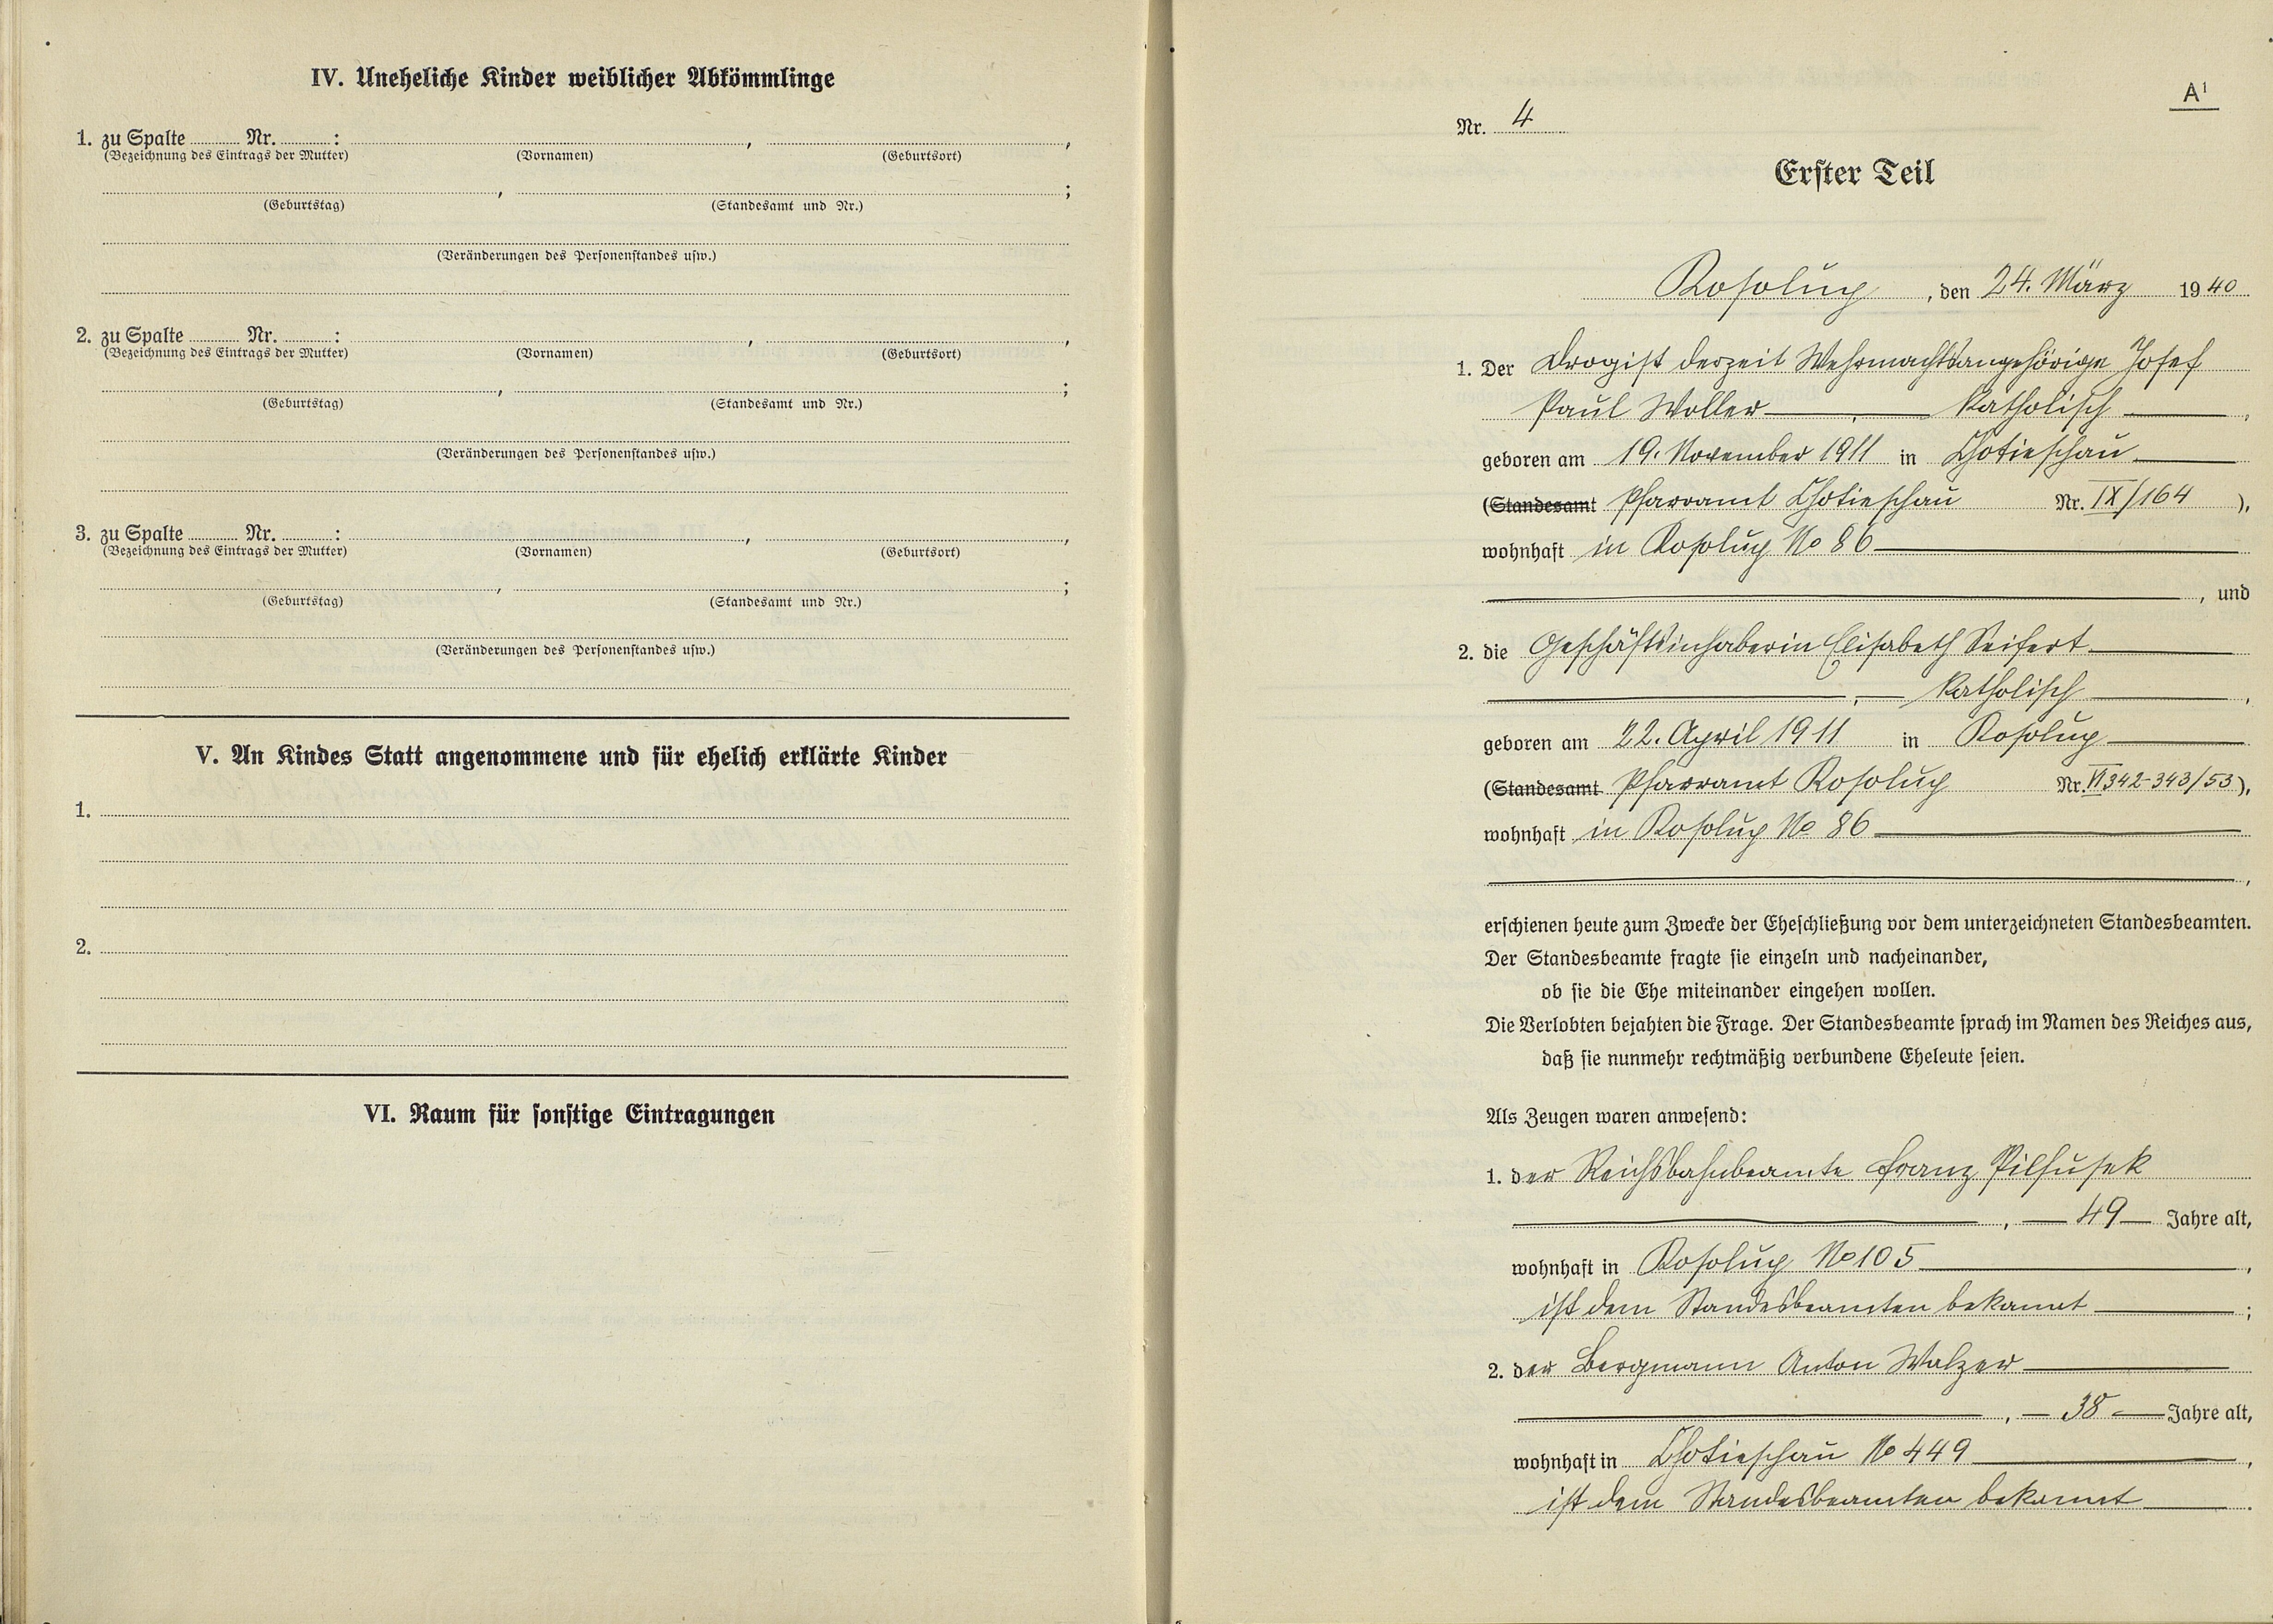 IV. Uneheliche Kinder weiblicher Abkömmlinge
1. zu Spalte ........ Nr. ........ :
(Bezeichnung des Eintrags der Mutter) (Vornamen) (Geburtsort)
, ;
(Geburtstag) (Standesamt und Nr.)
(Veränderungen des Personenstandes usw.)
2. zu Spalte ........ Nr. ........ :
(Bezeichnung des Eintrags der Mutter) (Vornamen) (Geburtsort)
, ;
(Geburtstag) (Standesamt und Nr.)
(Veränderungen des Personenstandes usw.)
3. zu Spalte ........ Nr. ........ :
(Bezeichnung des Eintrags der Mutter) (Vornamen) (Geburtsort)
, ;
(Geburtstag) (Standesamt und Nr.)
(Veränderungen des Personenstandes usw.)
V. An Kindes Statt angenommene und für ehelich erklärte Kinder
1.
2.
VI. Raum für sonstige Eintragungen
A1
Nr. 4
Erster Teil
Kosolup, den 24. März 1940
1. Der Drogist derzeit Wehrmachtsangehörige Josef
Paul Woller, Katholisch,
geboren am 19. November 1911 in Chotieschau
(Standesamt Pfarramt Chotieschau Nr. IX/164),
wohnhaft in Kosolup No 86
, und
2. die Geschäftsinhaberin Elisabeth Seifert
, Katholisch,
geboren am 22. April 1911 in Kosolup
(Standesamt Pfarramt Kosolup Nr. VI 342-343/53),
wohnhaft in Kosolup No 86
,
erschienen heute zum Zwecke der Eheschließung vor dem unterzeichneten Standesbeamten.
Der Standesbeamte fragte sie einzeln und nacheinander,
ob sie die Ehe miteinander eingehen wollen.
Die Verlobten bejahten die Frage. Der Standesbeamte sprach im Namen des Reiches aus,
daß sie nunmehr rechtmäßig verbundene Eheleute seien.
Als Zeugen waren anwesend:
1. der Reichsbahnbeamte Franz Pilsusek
, 49 Jahre alt,
wohnhaft in Kosolup No 105,
ist dem Standesbeamten bekannt;
2. der Bergmann Anton Walzer
, 38 Jahre alt,
wohnhaft in Chotieschau No 449,
ist dem Standesbeamten bekannt.